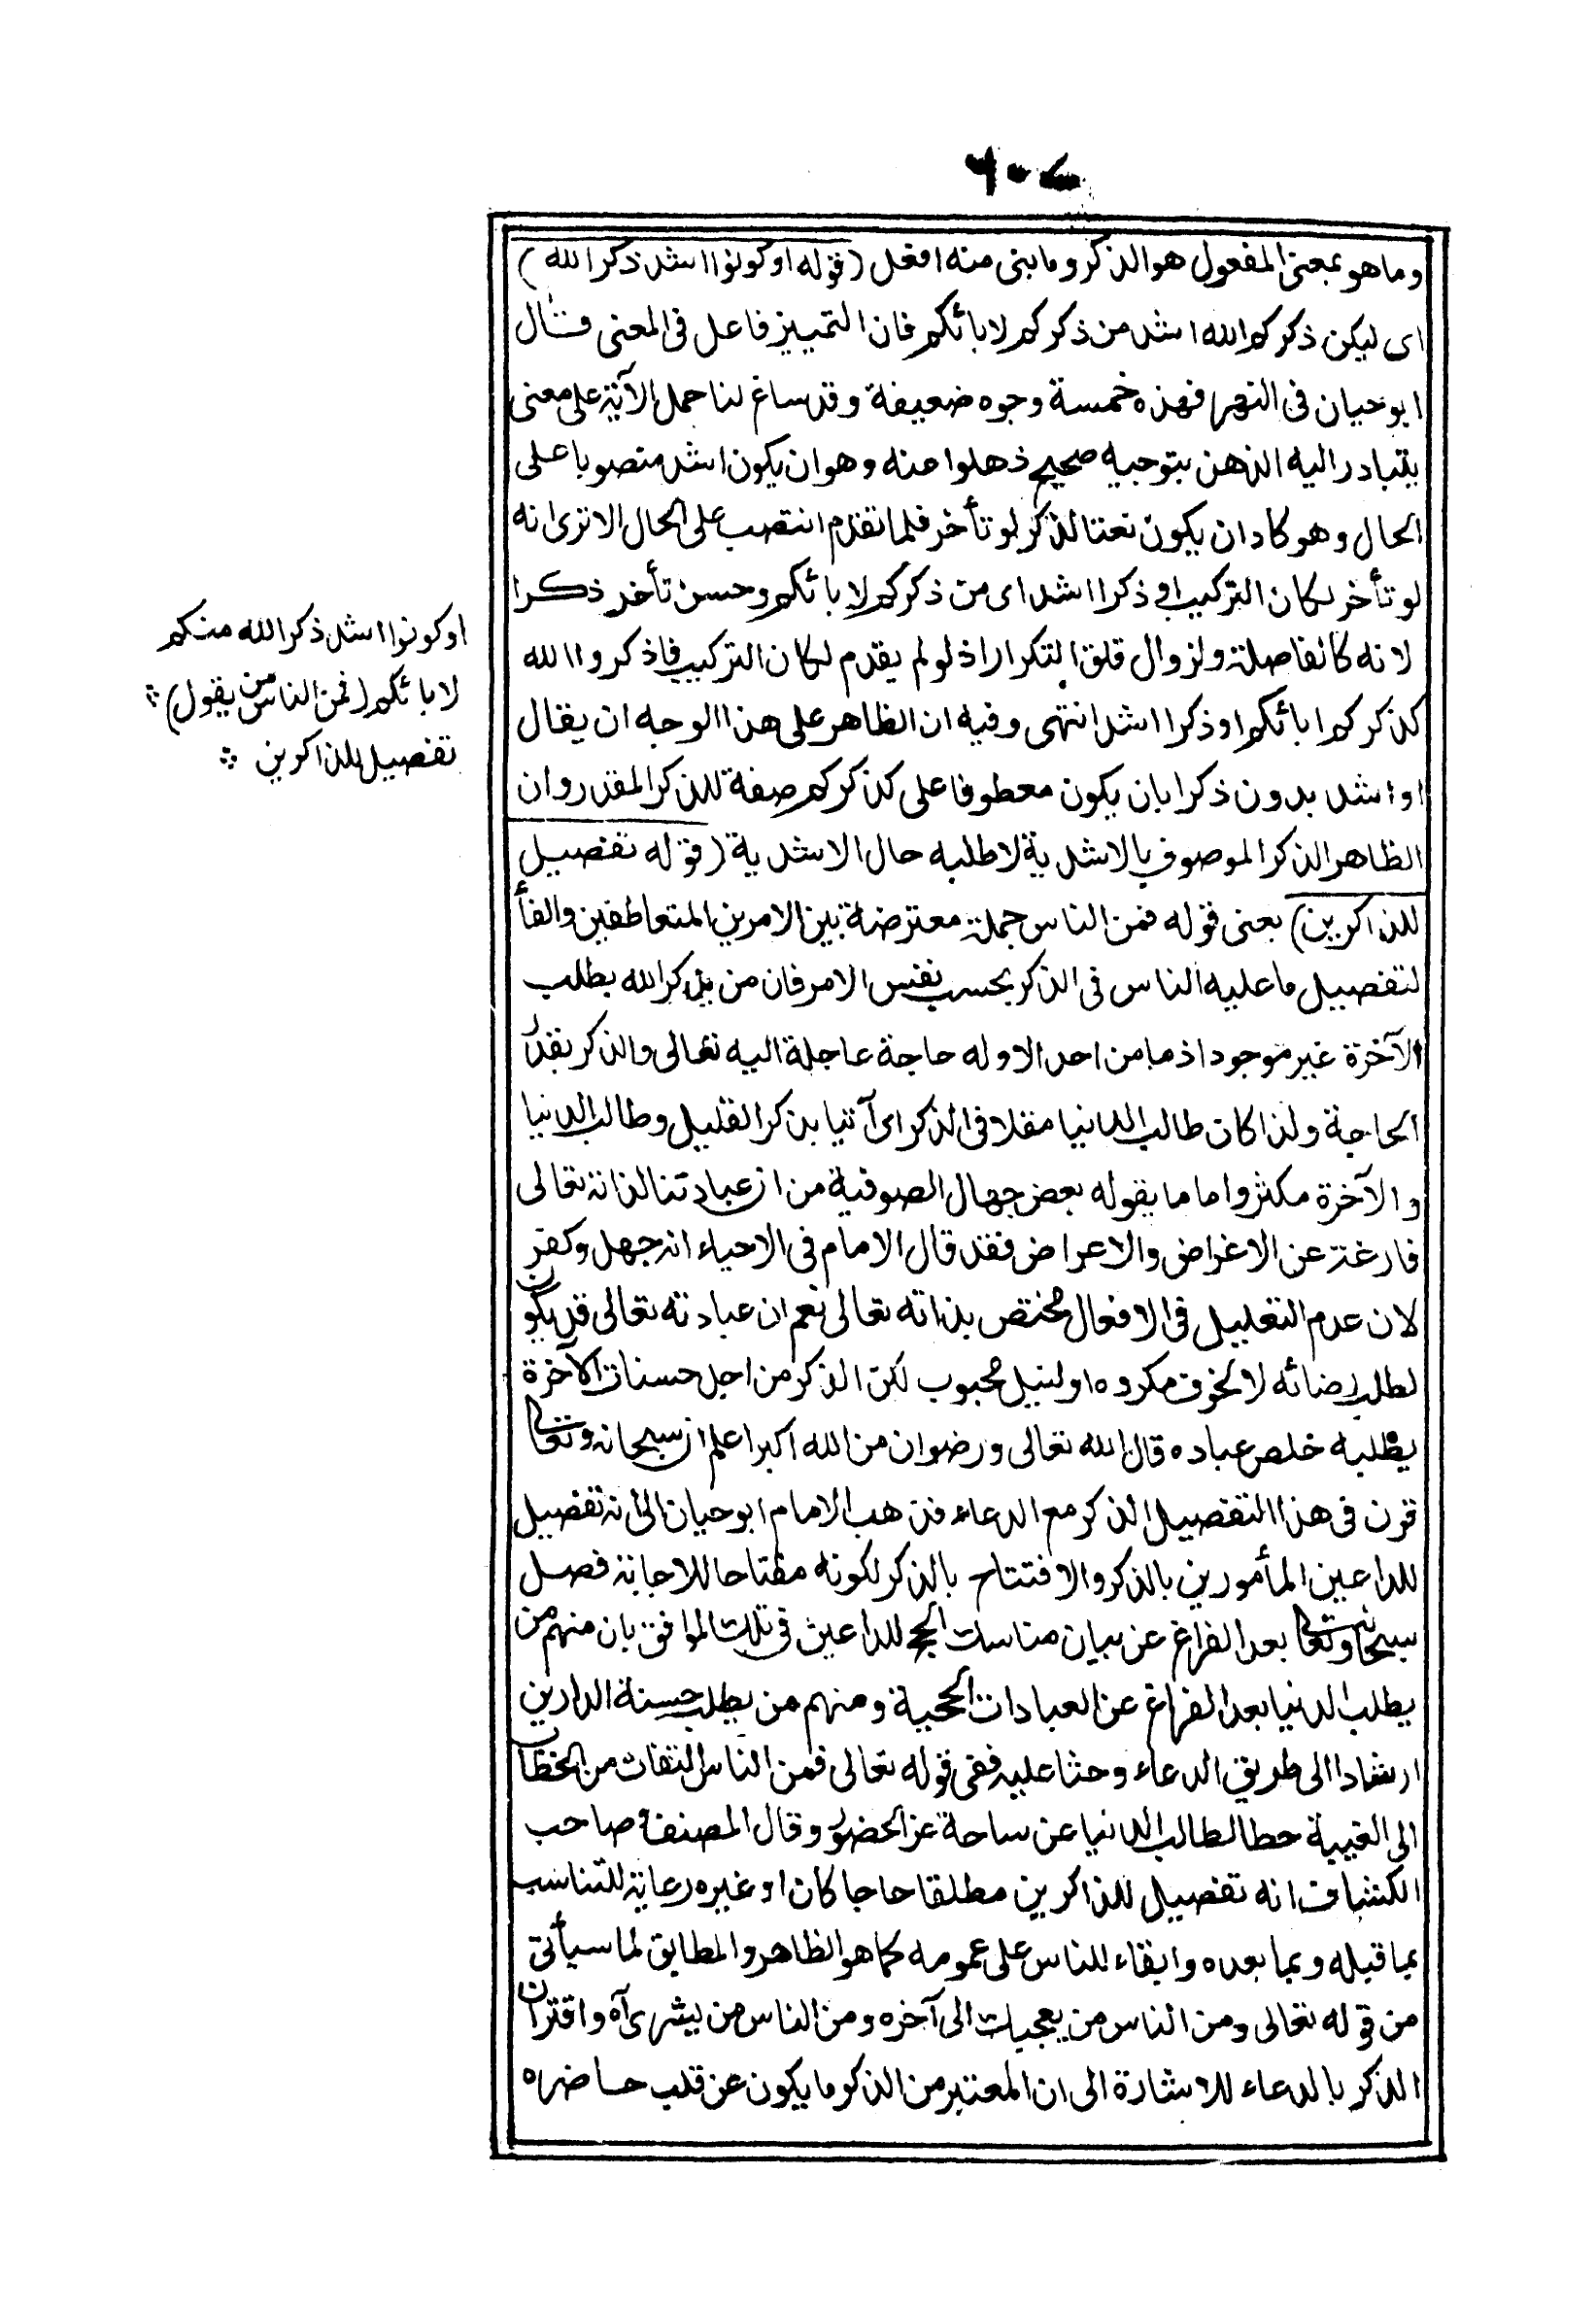 ٦٠٤
وما هو بمعنى المفعول هو الذكر وما بنى منه افعل (قوله او كونوا اشد ذكرا لله)
اى ليكن ذكركم الله اشد من ذكركم لابائكم فان التمييز فاعل فى المعنى قال
ابو حيان فى النهر فهذه خمسة وجوه ضعيفة وقد ساغ لنا حمل الآية على معنى
يتبادر اليه الذهن بتوجيه صحيح ذهلوا عنه وهو ان يكون اشد منصوبا على
الحال وهو كاد ان يكون نعتا لذكر لو تأخر فلما تقدم انتصب على الحال الا ترى انه
لو تأخر لكان التركيب او ذكرا اشد اى من ذكركم لابائكم وحسن تأخر ذكرا
لانه كالفاصلة ولزوال قلق التكرار اذ لو لم يقدم لكان التركيب فاذكروا الله
كذكركم ابائكم او ذكرا اشد انتهى وفيه ان الظاهر على هذا الوجه ان يقال
او اشد بدون ذكرا بان يكون معطوفا على كذكركم صفة للذكر المقدر وان
الظاهر الذكر الموصوف بالاشدية لا طلبه حال الاشدية (قوله تفصيل
للذاكرين) يعنى قوله فمن الناس جملة معترضة بين الامرين المتعاطفين والفأ
لتفصيل ما عليه الناس فى الذكر بحسب نفس الامر فان من يذكر الله بطلب
الآخرة غير موجود اذ ما من احد الا وله حاجة عاجلة اليه تعالى والذكر بقدر
الحاجة ولذا كان طالب الدنيا مقلا فى الذكر اى آتيا بذكر القليل وطالب الدنيا
والآخرة مكثر واما ما يقوله بعض جهال الصوفية من ان عبادتنا لذاته تعالى
فارغة عن الاغراض والاعراض فقد قال الامام فى الاحياء انه جهل وكفر
لان عدم التعليل فى الافعال مختص بذاته تعالى نعم ان عبادته تعالى قد يكون
لطلب رضائه لا لخوف مكروه او لنيل محبوب لكن الذكر من اجل حسنات الآخرة
يطلبه خلص عباده قال الله تعالى ورضوان من الله اكبر اعلم انه سبحانه وتعالى
قرن فى هذا التفصيل الذكر مع الدعاء فذهب الامام ابو حيان الى انه تفصيل
للداعين المأمورين بالذكر والافتتاح بالذكر لكونه مفتاحا للاجابة فصل
سبحانه وتعالى بعد الفراغ عن بيان مناسك الحج للداعين فى تلك المواقف بان منهم من
يطلب الدنيا بعد الفراغ عن العبادات الحجية ومنهم من يطلب حسنة الدارين
ارشادا الى طريق الدعاء وحثا عليه ففى قوله تعالى فمن الناس التفات من الخطاب
الى الغيبية حطا لطالب الدنيا عن ساحة عز الحضور وقال المصنف وصاحب
الكشاف انه تفصيل للذاكرين مطلقا حاجا كان او غيره رعاية للتناسب
بما قبله وبما بعده وابقاء للناس على عمومه كما هو الظاهر والمطابق لما سيأتى
من قوله تعالى ومن الناس من يعجبك الى آخره ومن الناس من يشرى آه واقتران
الذكر بالدعاء للاشارة الى ان المعتبر من الذكر ما يكون عن قلب حاضره
او كونوا اشد ذكرا لله منكم
لابائكم (فمن الناس من يقول)
تفصيل للذاكرين